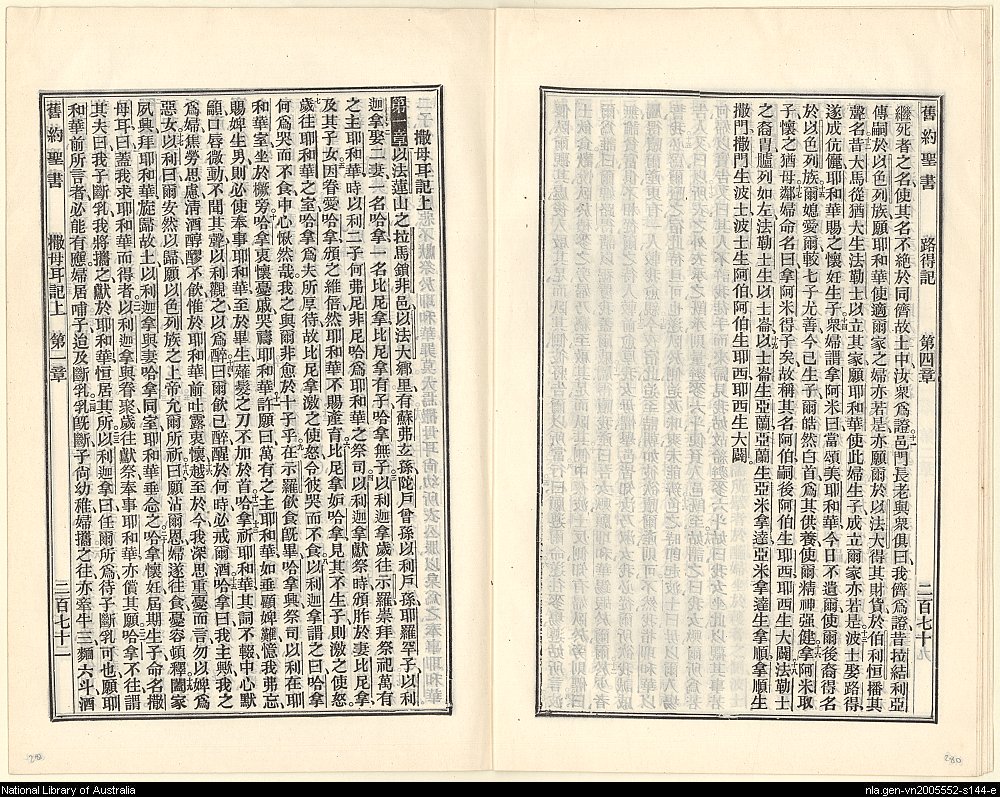 舊約聖書 路得記 第四章 二百七十九
繼死者之名使其名不絕於同儕故土中汝衆爲證邑門長老與衆俱曰我儕爲證昔拉結利亞
傳嗣於以色列族願耶和華使適爾家之婦亦若是亦願爾於以法大得其財貨於伯利恒播其
聲名昔大馬從猶大生法勒士以立其家願耶和華使此婦生子成立爾家亦若是波士娶路得
遂成伉儷耶和華賜之懷妊生子衆婦謂拿米曰當頌美耶和華今日不遺爾使爾後裔得名
於以色列族爾媳愛爾較七子尤善今已生子爾皓然白首爲其供養使爾精神强健拿阿米取
子懷之猶母鄰婦命名曰拿阿米得子矣故稱其名阿伯嗣後阿伯生耶西耶西生大闢法勒士
之裔胄臚列如左法勒士生以士崙以士崙生亞蘭亞蘭生亞米拿達亞米拿達生拿順拿順生
撒門撒門生波士波士生阿伯阿伯生耶西耶西生大闢。
撒母耳記上
第一章以法蓮山之拉馬鎖非邑以法大鄉里有蘇弗玄孫陀戶曾孫以利戶孫耶羅罕子以利
迦拿娶二妻一名哈拿一名比尼拿比尼拿有子哈拿無子以利迦拿歲往示羅崇拜祭祀萬有
之主耶和華時以利二子何弗尼非尼哈爲耶和華之祭司以利迦拿獻祭時頒胙於妻比尼拿
及其子女因眷愛哈拿頒之維倍然耶和華不賜產育比尼拿妬哈拿見其不生子則激之使怒
歲往耶和華之室哈拿爲夫所厚待故比尼拿激之使怒令彼哭而不食以利迦拿謂之曰哈拿
何爲哭而不食中心愀然哉我之與爾非愈於十子乎在示羅飲食旣畢哈拿興祭司以利在耶
和華室坐於橛旁哈拿衷懷憂戚哭禱耶和華許願曰萬有之主耶和華如垂顧婢難憶我弗忘
賜婢生男則必使奉事耶和華至於畢生薙髮之刀不加於首哈拿祈耶和華其詞不輟中心默
籲口唇微動不聞其聲以利觀之以爲醉曰爾飲已醉醒於何時必戒爾酒哈拿曰我主歟我之
爲婦焦勞思慮淸酒醇醪不飲惟於耶和華前吐露衷懷越至於今我深思重憂而言勿以婢爲
惡女以利曰爾安然以歸願以色列族之上帝允爾所祈曰願沾爾恩婦遂往食憂容頓釋闔家
夙興拜耶和華旋歸故土以利迦拿與妻哈拿同室耶和華垂念之哈拿懷妊屆期生子命名撒
母耳曰蓋我求耶和華而得者以利迦拿與眷聚歲往獻祭奉事耶和華亦償其願哈拿不往謂
其夫曰我子斷乳我將攜之獻於耶和華恒居其所以利迦拿曰任爾所爲待子斷乳可也願耶
和華前所言者必能有應婦居哺子迨及斷乳乳旣斷子尙幼稚婦攜之往亦牽牛三麵六斗酒
舊約聖書 撒母耳記上 第一章 二百七十二
National Library of Australia
nla.gen-vn2005552-s144-e
280